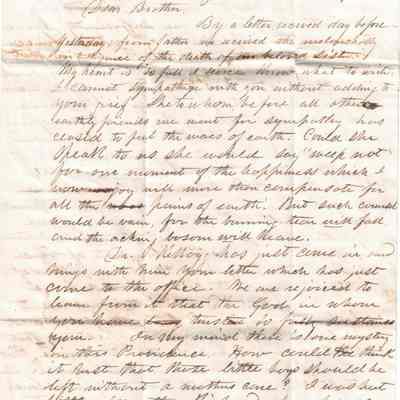 Dear Brother.
By a letter received day before
yesterday from father we received the melancholy
of the death of our beloved sister
My heart is so full I scarce know what to write.
I cannot sympathize with you without adding to
your grief. She to whom before all other
earthly friends we went for sympathy has
ceased to feel the woes of earth. Could she
speak to us she would say "weep not"
for one moment of the happiness which I
now enjoy will more than compensate for
all the pains of earth. But such counsel
would be vain, for the burning tear will fall
and the aching bosom will heave.
Dr. has just come in and
brings with him your letter which has just
come to the office. We are rejoiced to
learn from it that the God in whom
you have trusted is
you. In my mind there is some mystery
in this Providence. How could think
it best that those little boys should be
left without a mothers care? I was but